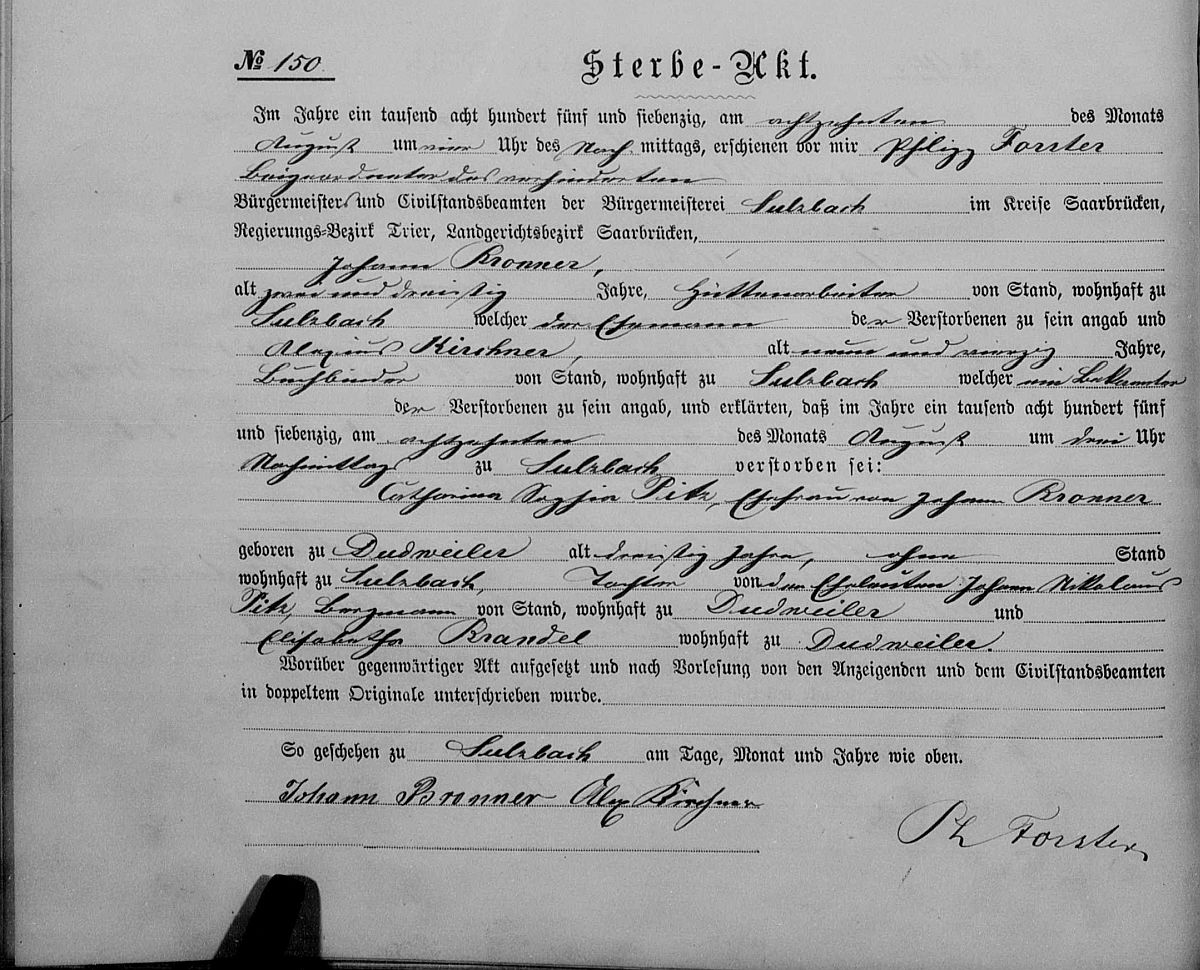 № 150
Sterbe-Akt.
Im Jahre ein tausend acht hundert fünf und siebenzig, am achtzehnten des Monats
August um vier Uhr des Nach mittags, erschienen vor mir Philipp Forster
Beigeordneter des verhinderten
Bürgermeisters und Civilstandsbeamten der Bürgermeisterei Sulzbach im Kreise Saarbrücken,
Regierungs-Bezirk Trier, Landgerichtsbezirk Saarbrücken,
Johann Bronner,
alt zwei und dreißig Jahre, Hüttenarbeiter von Stand, wohnhaft zu
Sulzbach welcher der Ehemann der Verstorbenen zu sein angab und
Alexius Kirchner, alt neun und vierzig Jahre,
Buchbinder von Stand, wohnhaft zu Sulzbach welcher ein Bekannter
der Verstorbenen zu sein angab, und erklärten, daß im Jahre ein tausend acht hundert fünf
und siebenzig, am achtzehnten des Monats August um drei Uhr
Nachmittags zu Sulzbach verstorben sei:
Catharina Sophia Pitz, Ehefrau von Johann Bronner
geboren zu Dudweiler alt dreißig Jahre, ohne Stand
wohnhaft zu Sulzbach, Tochter von den Eheleuten Johann Nikolaus
Pitz, Bergmann von Stand, wohnhaft zu Dudweiler und
Elisabetha Brandel wohnhaft zu Dudweiler.
Worüber gegenwärtiger Akt aufgesetzt und nach Vorlesung von den Anzeigenden und dem Civilstandsbeamten
in doppeltem Originale unterschrieben wurde.
So geschehen zu Sulzbach am Tage, Monat und Jahre wie oben.
Johann Bronner Alex Kirchner
Ph Forster